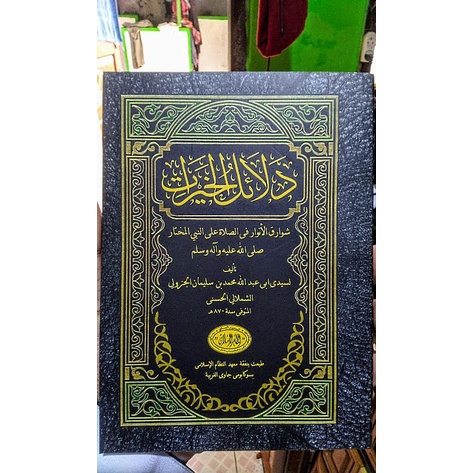 دلائل الخيرات
شوارق الأنوار فى الصلاة على النبي المختار
صلى الله عليه وآله وسلم
تأليف
لسيدى ابى عبد الله محمد بن سليمان الجزولي
الشملالي الحسنى
المتوفى سنة ٨٧٠هـ
طبعت بنفقة معهد النظام الإسلامى
بسوكابومى جاوى الغربية